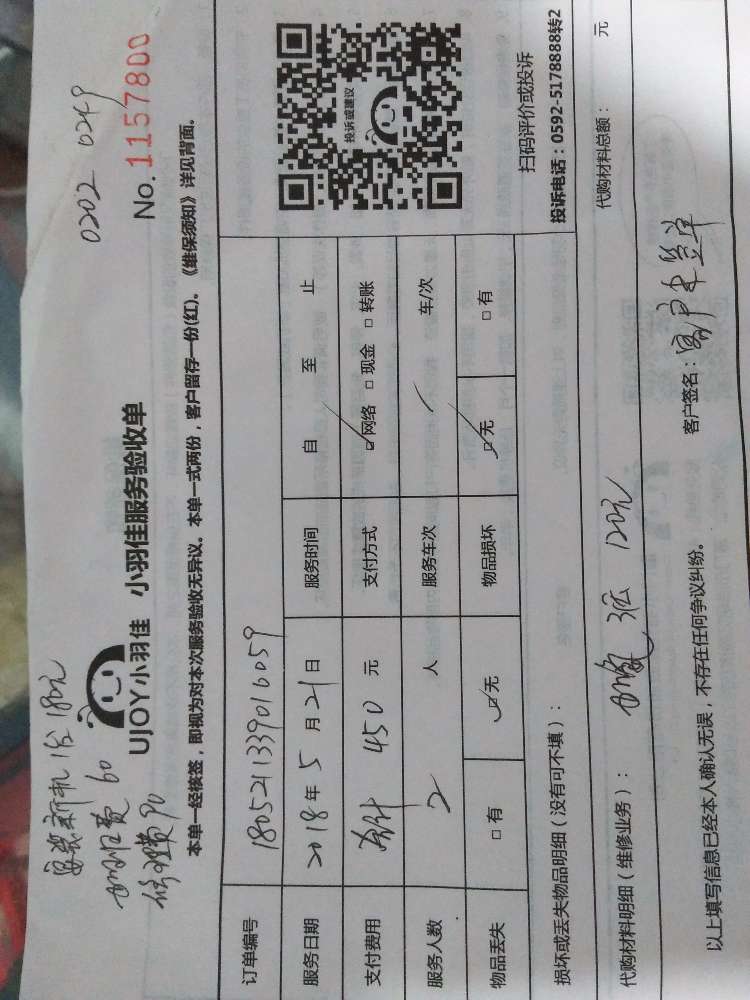 0202 0249
安装新机1台180元
加班费60
修理费90
UJOY小羽佳 小羽佳服务验收单
No. 1157800
本单一经核签，即视为对本次服务验收无异议。本单一式两份，客户留存一份(红)。《维保须知》详见背面。
订单编号 180521339016059
服务日期 2018年5月21日 服务时间 自 至 止
支付费用 合计 450 元 支付方式 ☑网络 □现金 □转账
服务人数 2 人 服务车次 / 车/次
物品丢失 □有 ☑无 物品损坏 ☑无 □有
投诉或建议
扫码评价或投诉
投诉电话：0592-5178888转2
损坏或丢失物品明细（没有可不填）：
代购材料明细（维修业务）： 加氟 120元 代购材料总额： 元
以上填写信息已经本人确认无误，不存在任何争议纠纷。 客户签名：客户未签单